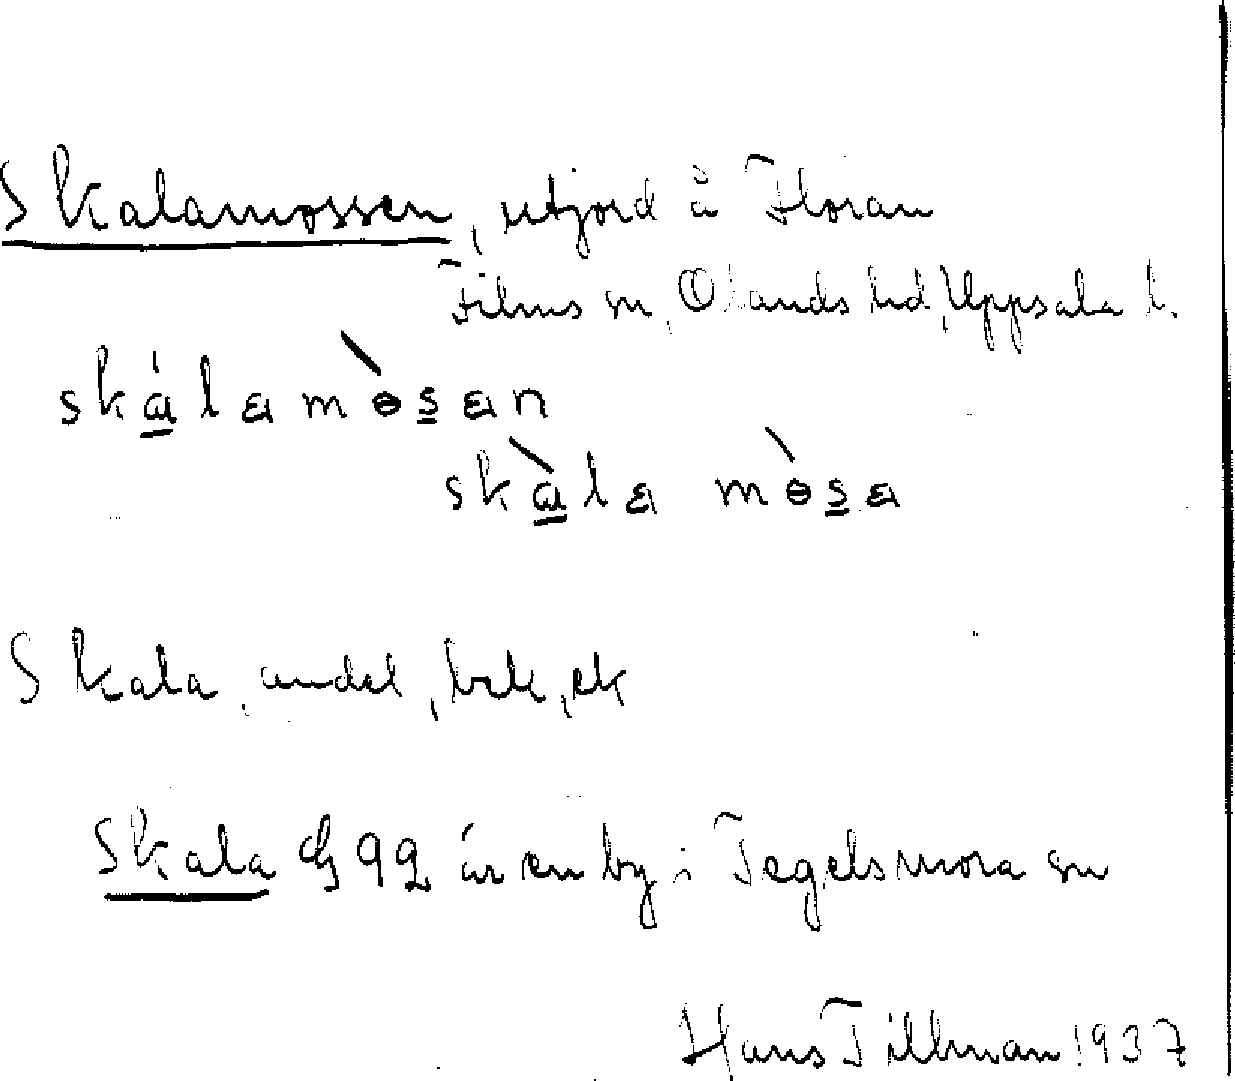 Skalamossen, utjord å Floran
Films sn, Olands hd, Uppsala l.
skálamòsan
skàla mòsa
Skala, andel, bek, ek
Skala G 92 är en by i Tegelsmora sn
Hans Tillman 1937